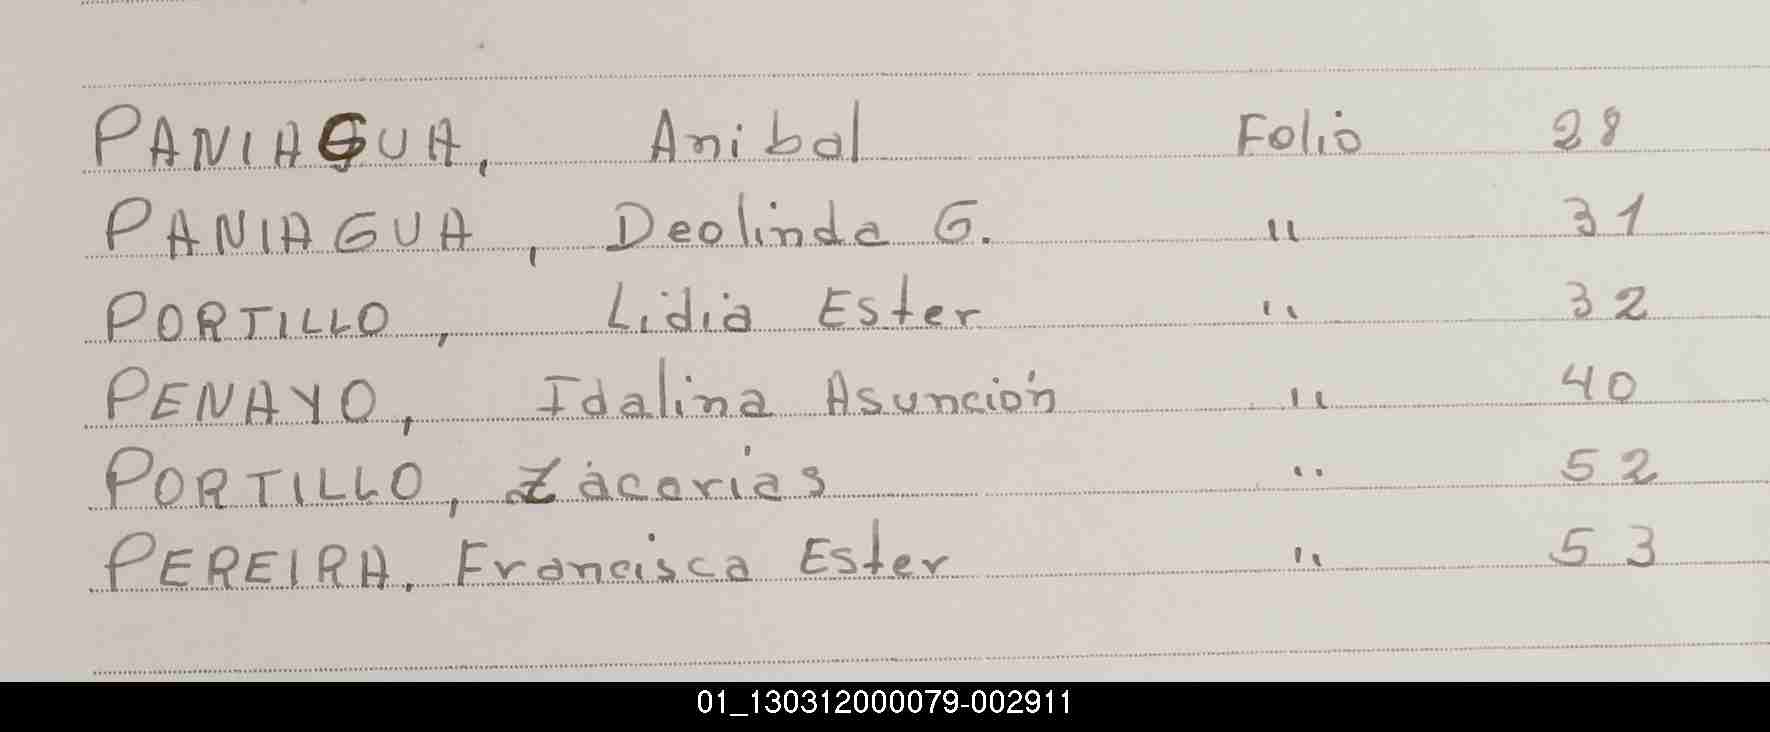 PANIAGUA, Anibal Folio 28
PANIAGUA, Deolinda G. " 31
PORTILLO, Lidia Ester " 32
PENAYO, Idalina Asunción " 40
PORTILLO, Zacarias " 52
PEREIRA, Francisca Ester " 53
01_130312000079-002911